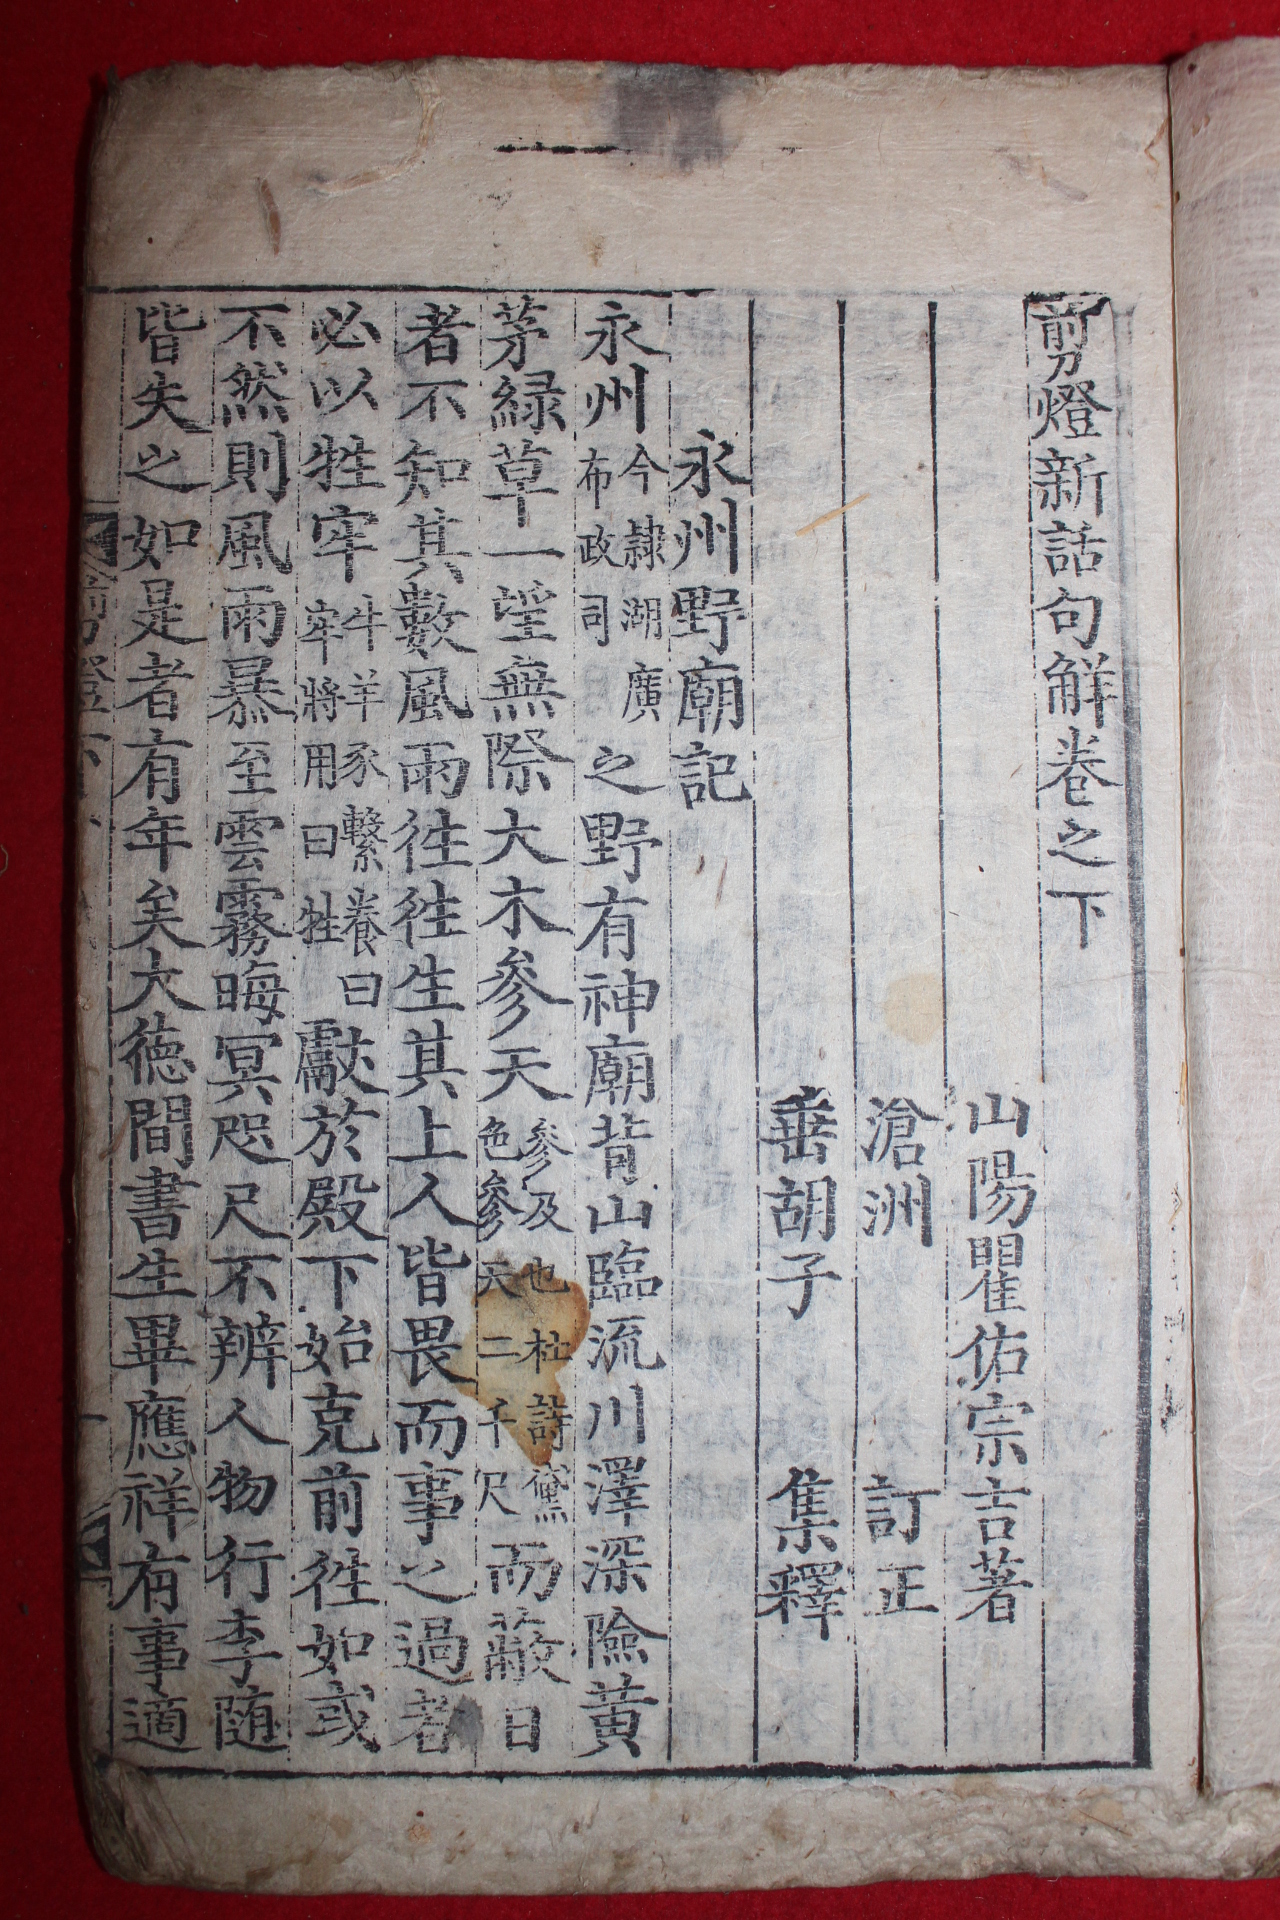 剪燈新話句解卷之下
山陽瞿佑宗吉著
滄洲 訂正
垂胡子 集釋
永州野廟記
永州今隷湖廣布政司之野有神廟背山臨流川澤深險黃
茅綠草一望無際大木參天參及也杜詩黛色參天二千尺而蔽日
者不知其數風雨徃徃生其上人皆畏而事之過者
必以牲牢牛羊豕繫養曰牢將用曰牲獻於殿下始克前徃如或
不然則風雨暴至雲霧晦冥咫尺不辨人物行李随
皆失之如是者有年矣大德間書生畢應祥有事適
剪燈下
一